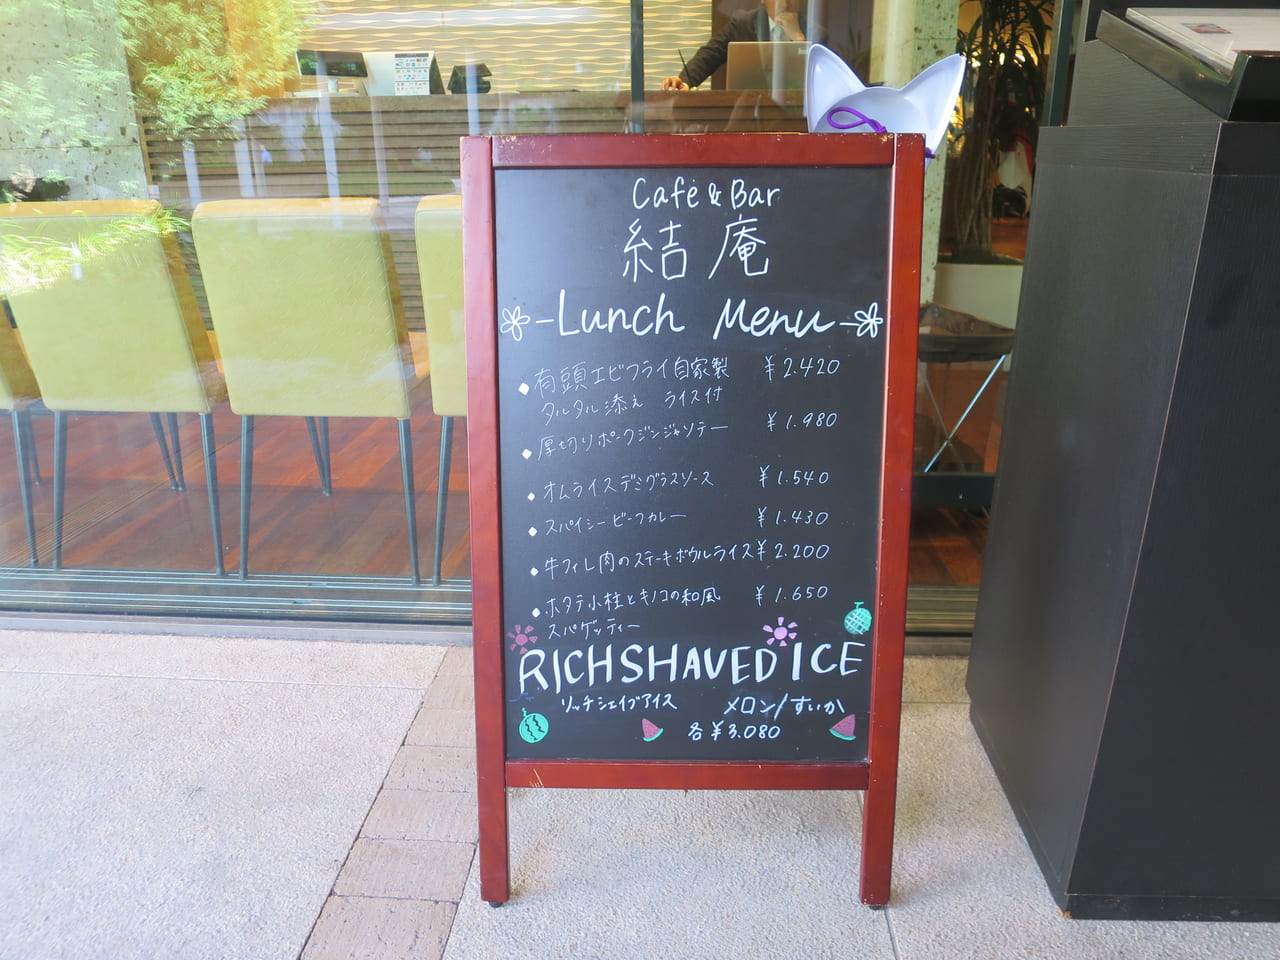 Café & Bar
結庵
-Lunch Menu-
有頭エビフライ自家製 ¥2.420
タルタル添え ライス付
厚切りポークジンジャソテー ¥1.980
オムライスデミグラスソース ¥1.540
スパイシービーフカレー ¥1.430
牛フィレ肉のステーキボウルライス ¥2.200
ホタテ小柱とキノコの和風 ¥1.650
スパゲッティー
RICHSHAVED ICE
リッチシェイブアイス メロン/すいか
各¥3.080